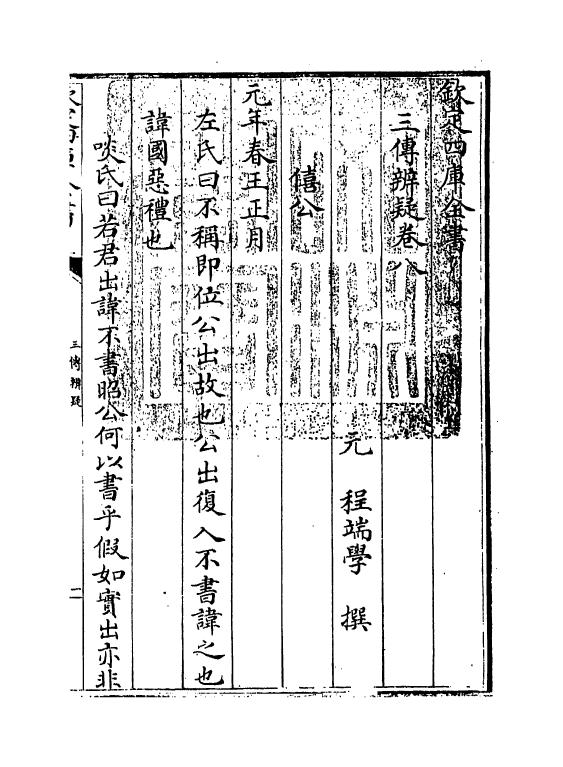 欽定四庫全書
三傳辨疑卷八
元 程端學 撰
僖公
元年春王正月
左氏曰不稱即位公出故也公出復入不書諱之也
諱國惡禮也
啖氏曰若君出諱不書昭公何以書乎假如實出亦非
三傳辨疑